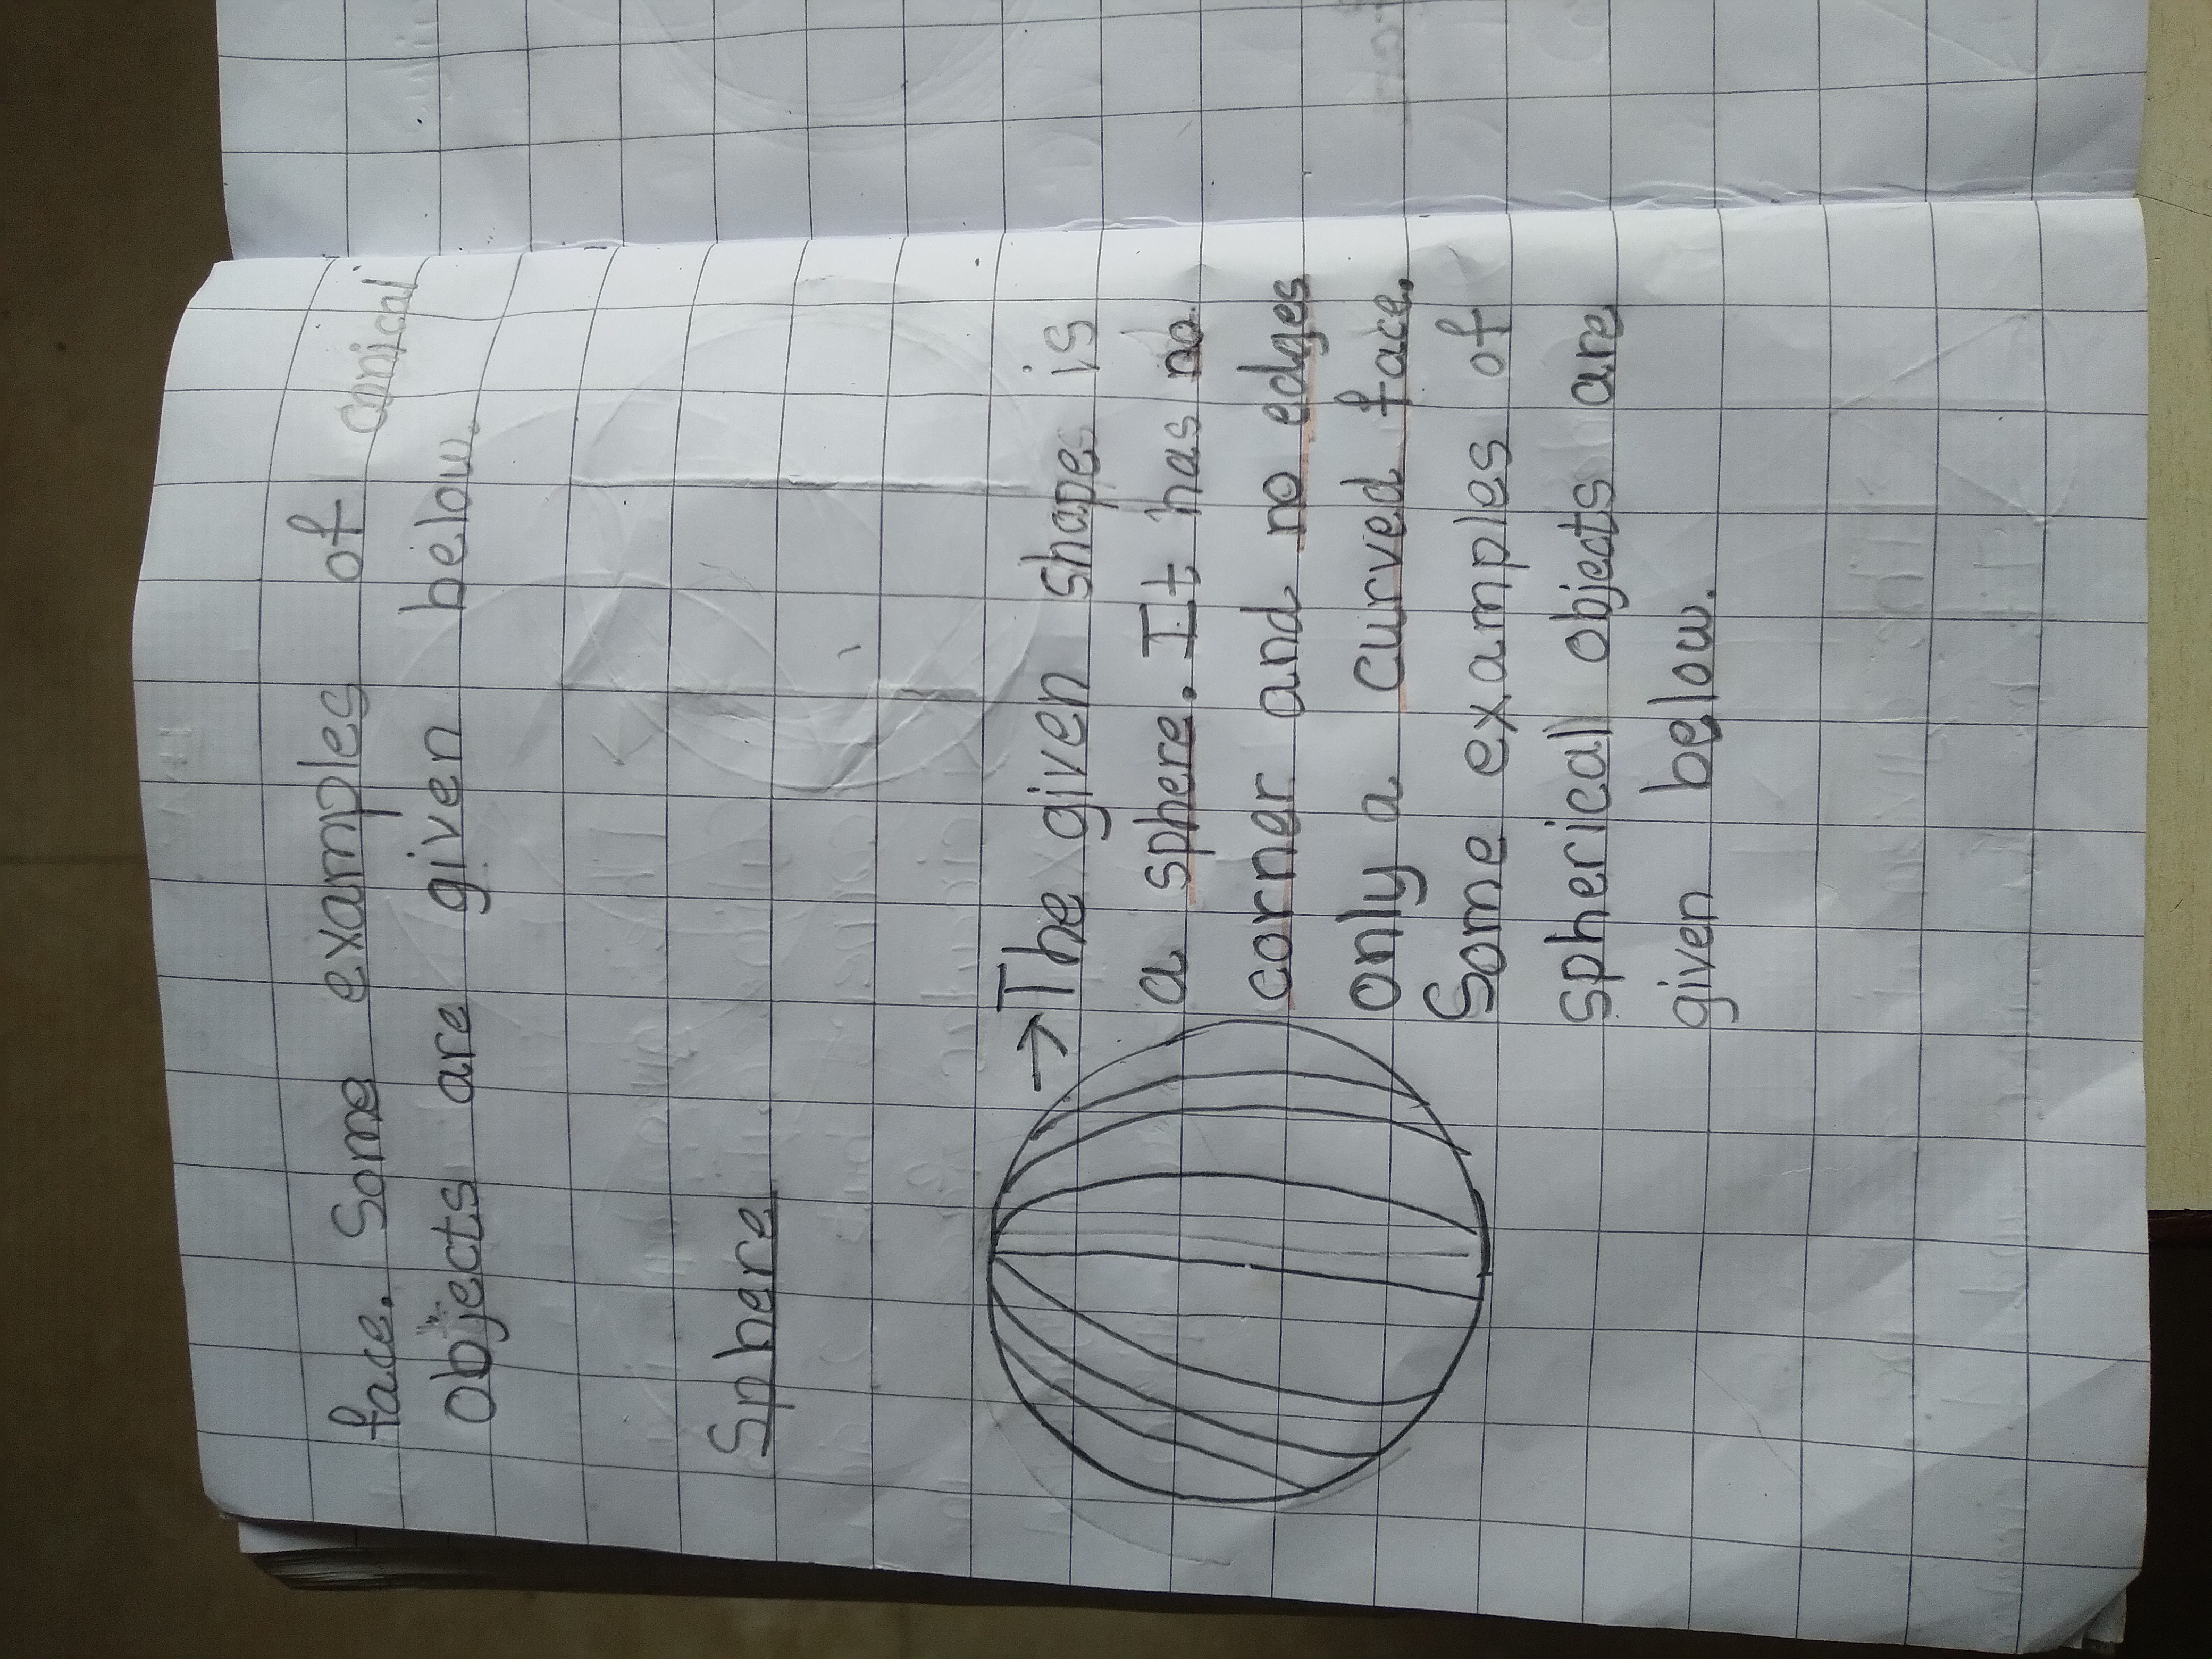 face. Some examples of conical
Objects are given below.
Sphere
→The given shapes is
a sphere. It has no
corner and no edges
only a curved face.
Some examples of
Spherical objects are
given below.